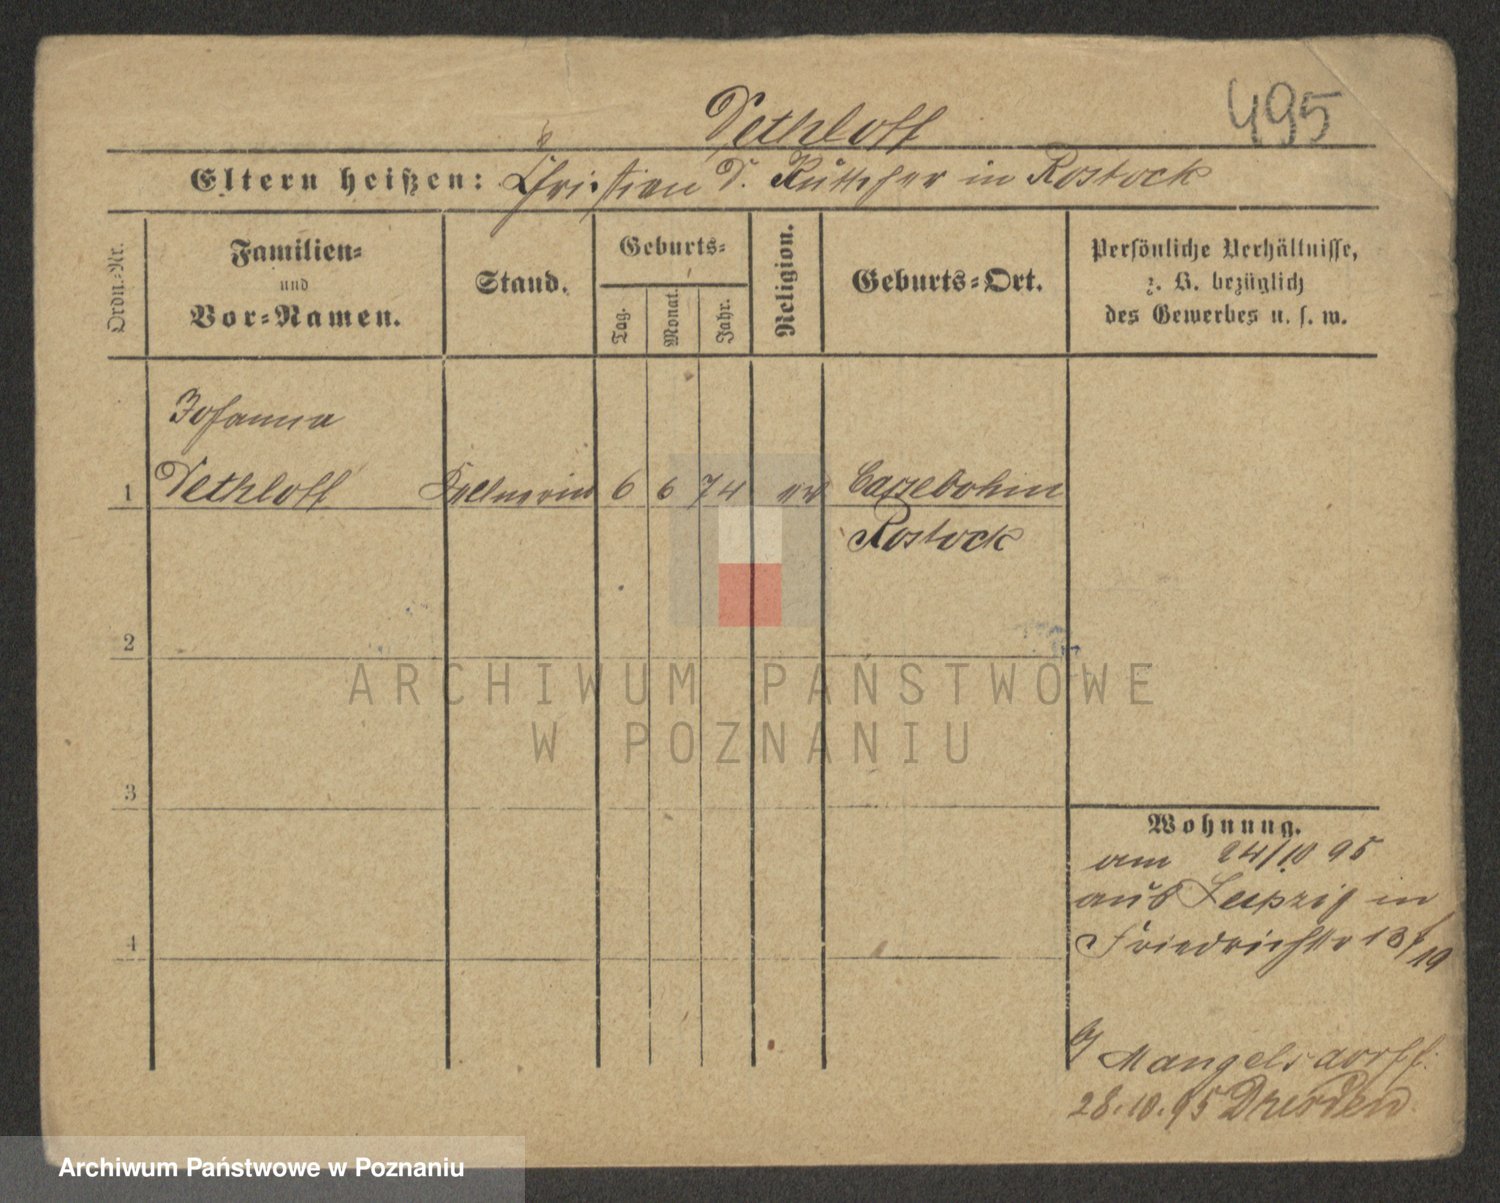 495
Dethloff
Eltern heißen: Christian D. Rüttcher in Rostock
Ordn.-Nr.
Familien-
und
Vor-Namen.
Stand.
Geburts-
Tag.
Monat.
Jahr.
Religion.
Geburts-Ort.
Persönliche Verhältnisse,
z. B. bezüglich
des Gewerbes u. s. w.
Johanna
1 Dethloff Kellnerin 6 6 74 ev Cassebohm
Rostock
2
3
4
Wohnung.
am 24/10 95
aus Leipzig in
Friedrichstr 18/19
b/ Mangelsdorff.
28.10.95 Dresden
ARCHIWUM PAŃSTWOWE
W POZNANIU
Archiwum Państwowe w Poznaniu